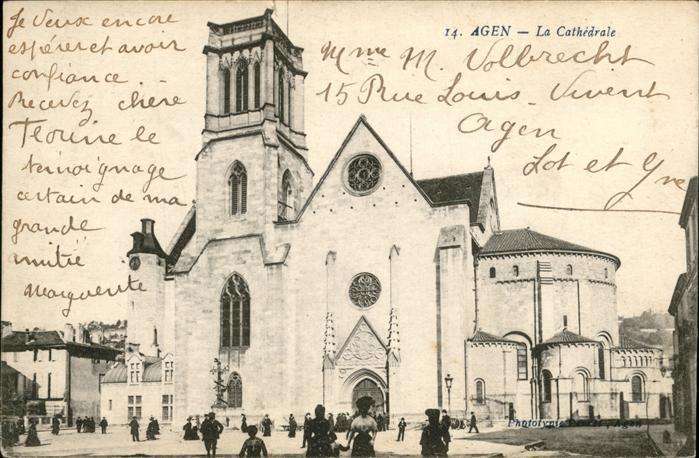 Je veux encore
espérer et avoir
confiance
Recevez chère
le
témoignage
certain de ma
grande
amitié
Marguerite
14. AGEN — La Cathédrale
Mme M. Volbrecht
15 Rue Louis Vivent
Agen
Lot et
Phototypie Agen